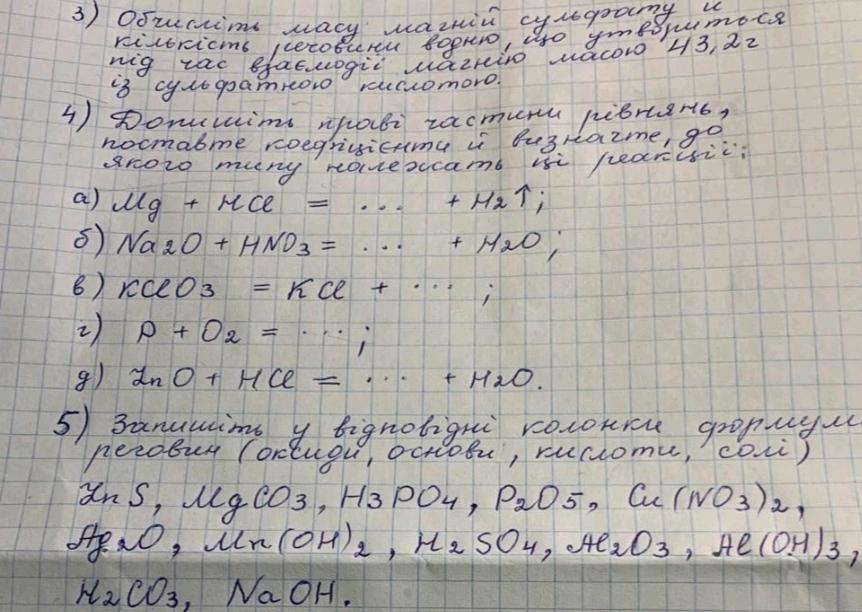 3) Обчисліть масу магній сульфату й
кількість речовини водню, що утвориться
під час взаємодії магнію масою 43,2г
із сульфатною кислотою.
4) Допишіть праві частини рівнянь,
поставте коефіцієнти й визначте, до
якого типу належать ці реакції:
а) Mg + HCl = ... + H2↑;
б) Na2O + HNO3 = ... + H2O;
в) KClO3 = KCl + ... ;
г) P + O2 = ... ;
д) ZnO + HCl = ... + H2O.
5) Запишіть у відповідні колонки формули
речовин (оксиди, основи, кислоти, солі)
ZnS, MgCO3, H3PO4, P2O5, Cu(NO3)2,
Ag2O, Mn(OH)2, H2SO4, Al2O3, Al(OH)3,
H2CO3, NaOH.